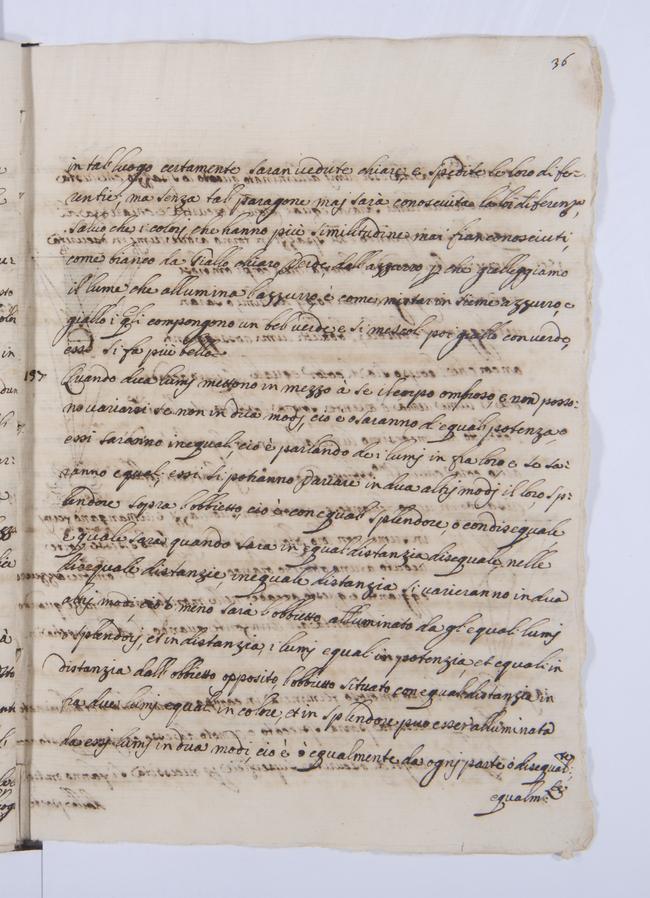 36
in tal luogo certamente saran vedute chiare, e spedite le loro dife-
rentie, ma senza tal paragone maj sarà conosciuta la lor diferenza,
salvo che i colorj, che hanno più similitudine mai fian conosciuti,
come bianco da giallo chiaro verde dall'azzurro p che gialleggiamo
il lume che allumina l'azzurro è come mistar insieme azzurro, e
giallo i qli compongono un bel verde, e si mescoli poi giallo con verde,
esso si fa più bello.
157
Quando dua lumj mettono in mezzo à se il corpo ombroso, e non posso-
no variarsi se non in dua modj, cio è o saranno d'equal potenza, o
essi saranno inequali, cio è parlando de i lumj in fra loro e se sa-
ranno equali, essi si potranno variare in dua altrj modj il loro sp-
lendore sopra l'obbietto, cio è con equal splendore, o con disequale
equale sarà quando sarà in equal distanzia disequale nelle
disequale distanzie, inequale distanzia si varieranno in dua
altrj modj, cio è meno sarà l'obbietto alluminato da gl'equali lumj
splendorj, et in distanzia, i lumj equali in potenzia, et equali in
distanzia dall'obbietto opposito l'obbietto situato con equal distanzia in
fra due lumj equali in colore, et in splendore puo esser alluminato
da essi lumj in dua modi, cio è ò equalmente da ognj parte ò disequal:te
equalm:te